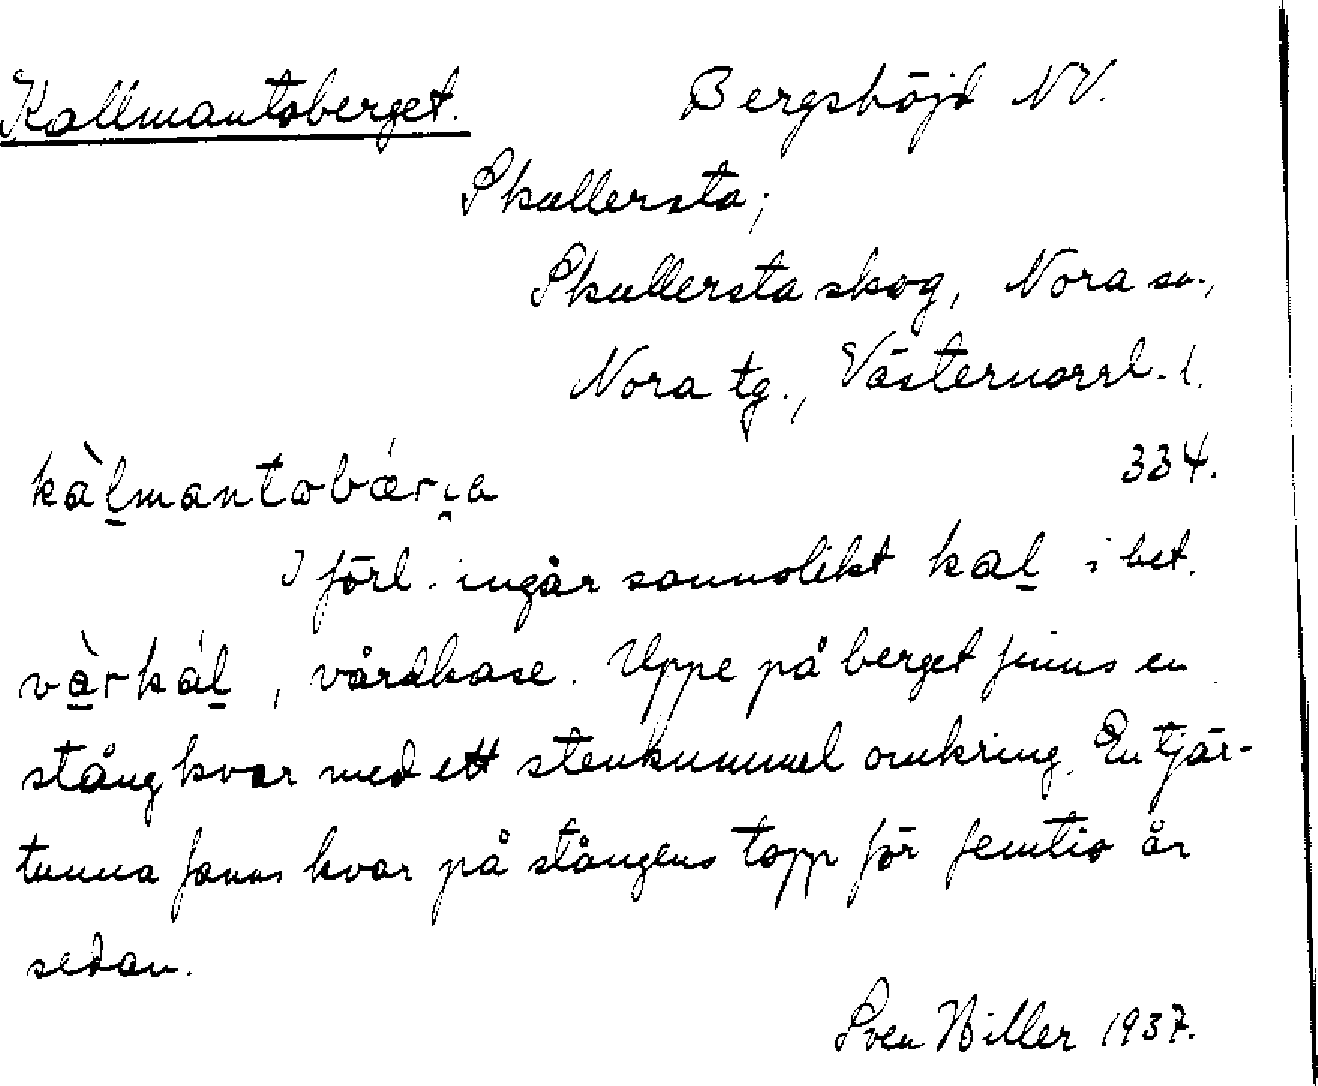 Kallmantoberget. Bergshöjd NV.
Skullersta;
Skullersta skog, Nora sn.,
Nora tg., Västernorrl. l.
334.
kàl̠mantobǽri̯a
I förl. ingår sannolikt kal̠ i bet.
và̠rkál̠, vårdkase. Uppe på berget finns en
stång kvar med ett stenkummel omkring. En tjär-
tunna fanns kvar på stångens topp för femtio år
sedan.
Sven Hiller 1937.